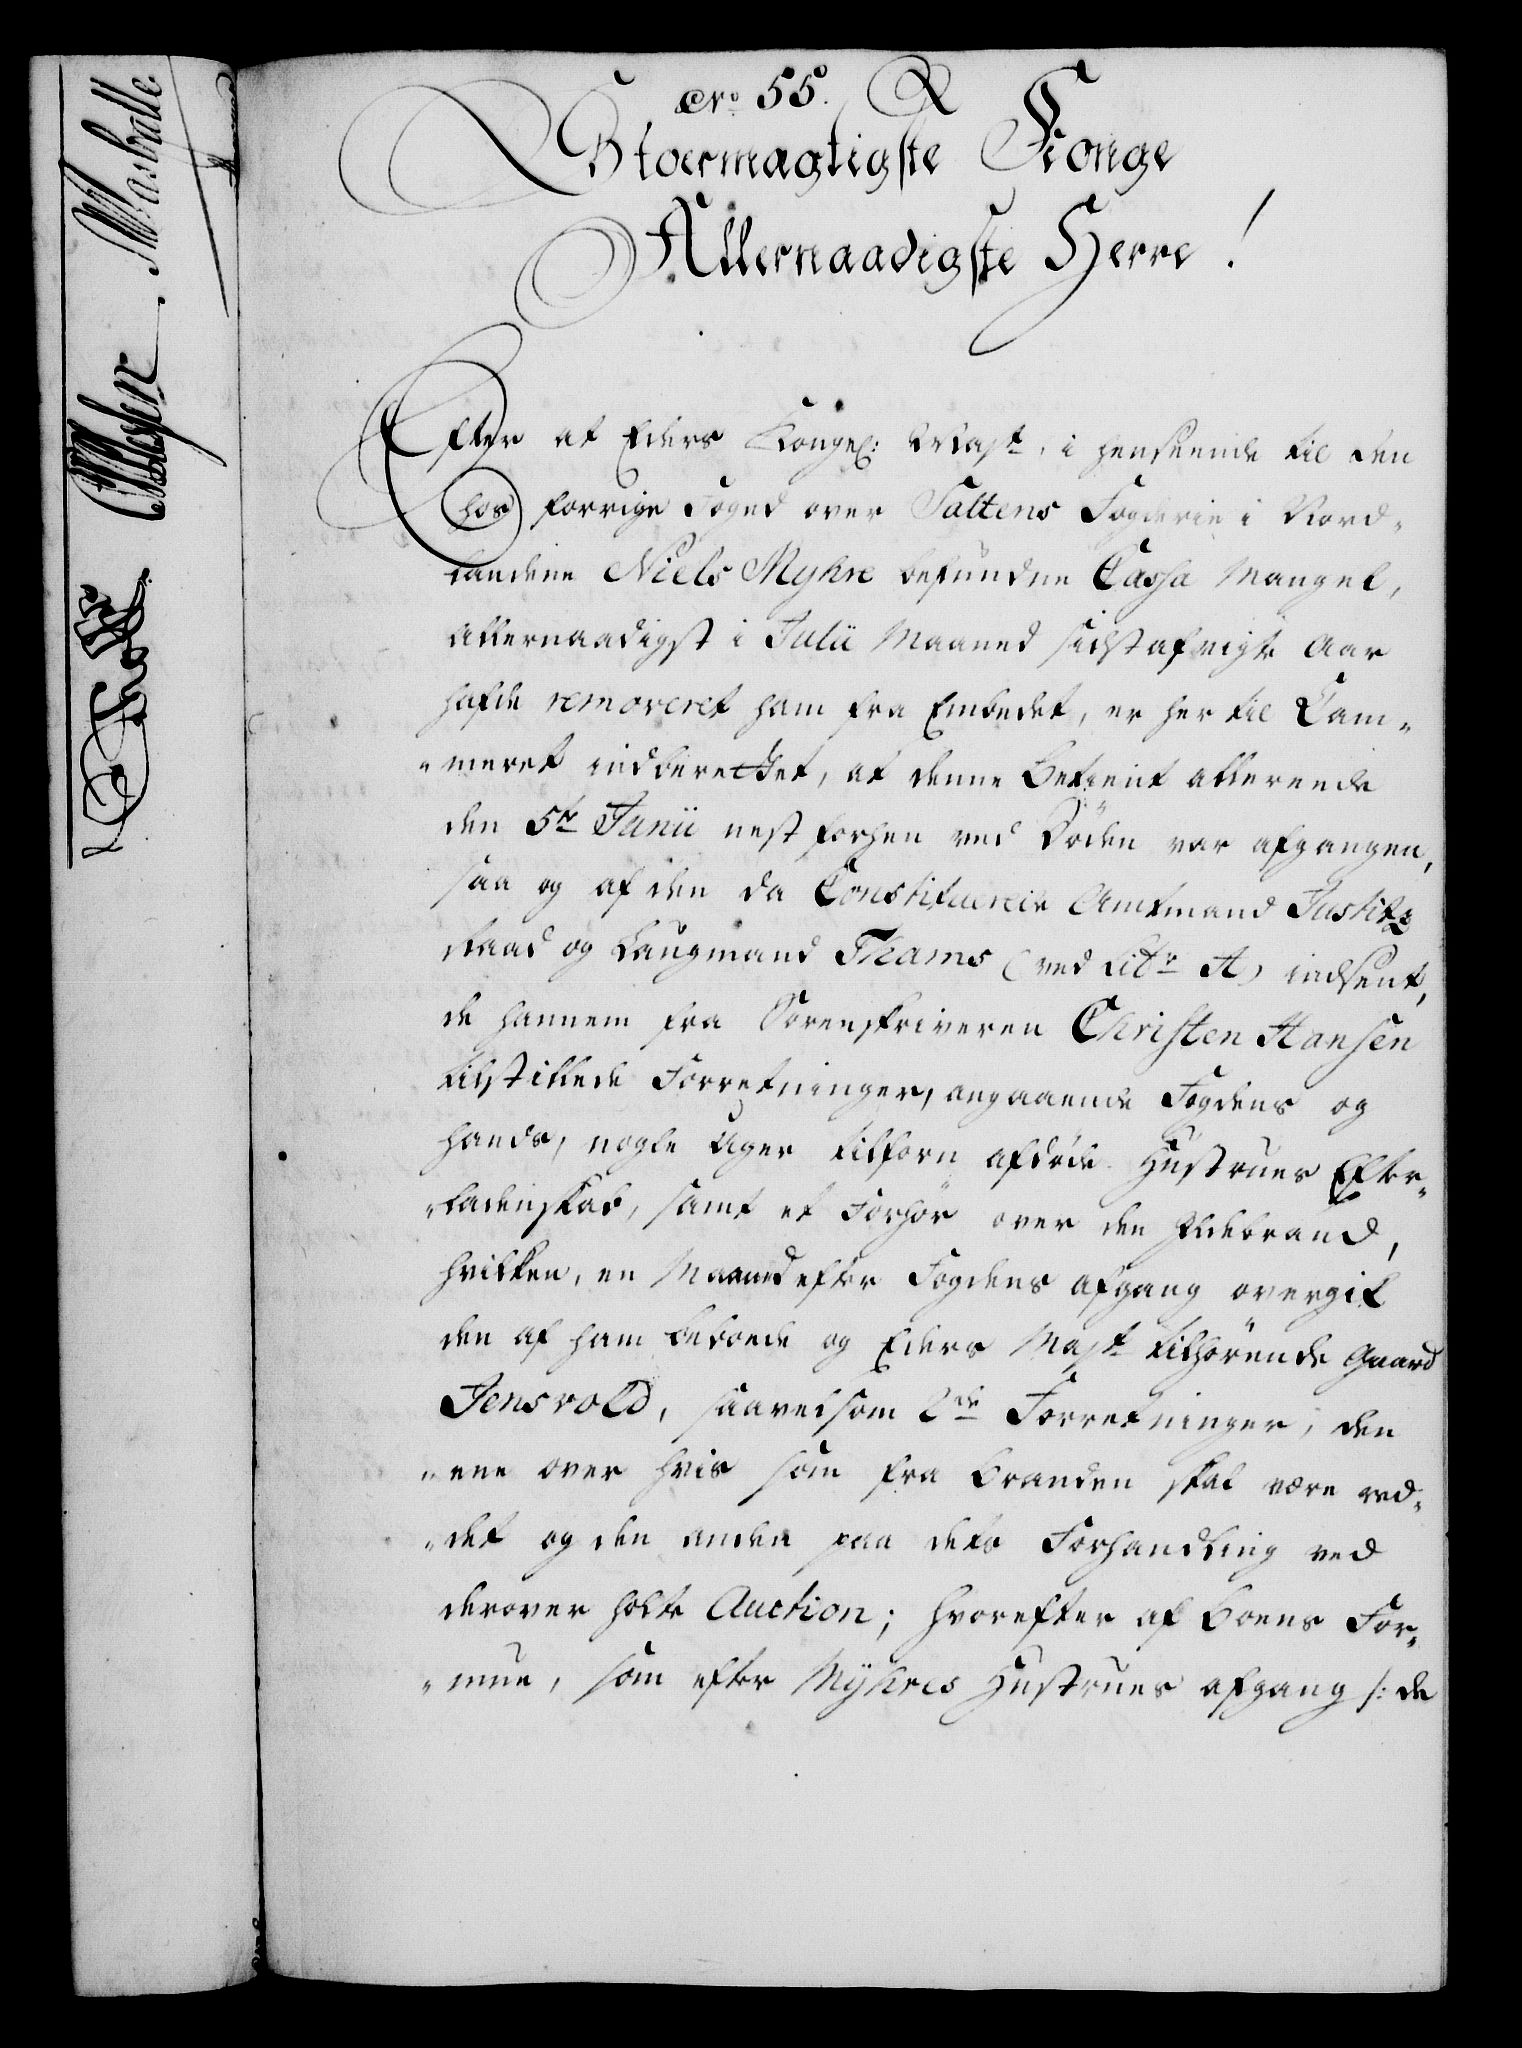 No 55.
Stormægtigste Konge
Allernaadigste Herre!
Efter at Eders Kongel: Mayt, i henseende til den
hos forrige Foged over Saltens Fogderie i Nord-
landene Niels Myhre befundne Cassa Mangel,
Allernaadigst i Julii Maaned sidstafvigte Aar
hafde removeret ham fra Embedet, er her til Cam-
"meret indberettet, at denne Betient allereede
den 5te Junii nest forhen ved Döden var afgangen,
saa og af den da Constituerede Amtmand Justitz
Raad og Laugmand Thams (ved Litr A) indsent,
de hannem fra Sorenskriveren Christen Hansen
tilstillede Forretninger, angaaende Fogdens og
hands, nogle Uger tilforn afdöde Hustrues Efter-
"ladenskab, samt et Forhör over den Ildebrand,
hvilken, en Maaned efter Fogdens afgang overgik
den af ham beboede og Eders Mayt tilhörende Gaard
Jensvold, saavelsom 2de Forretninger, den
"ene over hvis som fra Branden skal være red-
"det og den anden paa dets Forhandling ved
derover holte Auction; hvorefter af Boens For-
"mue, som efter Mÿhres Hustrues afgang /: de